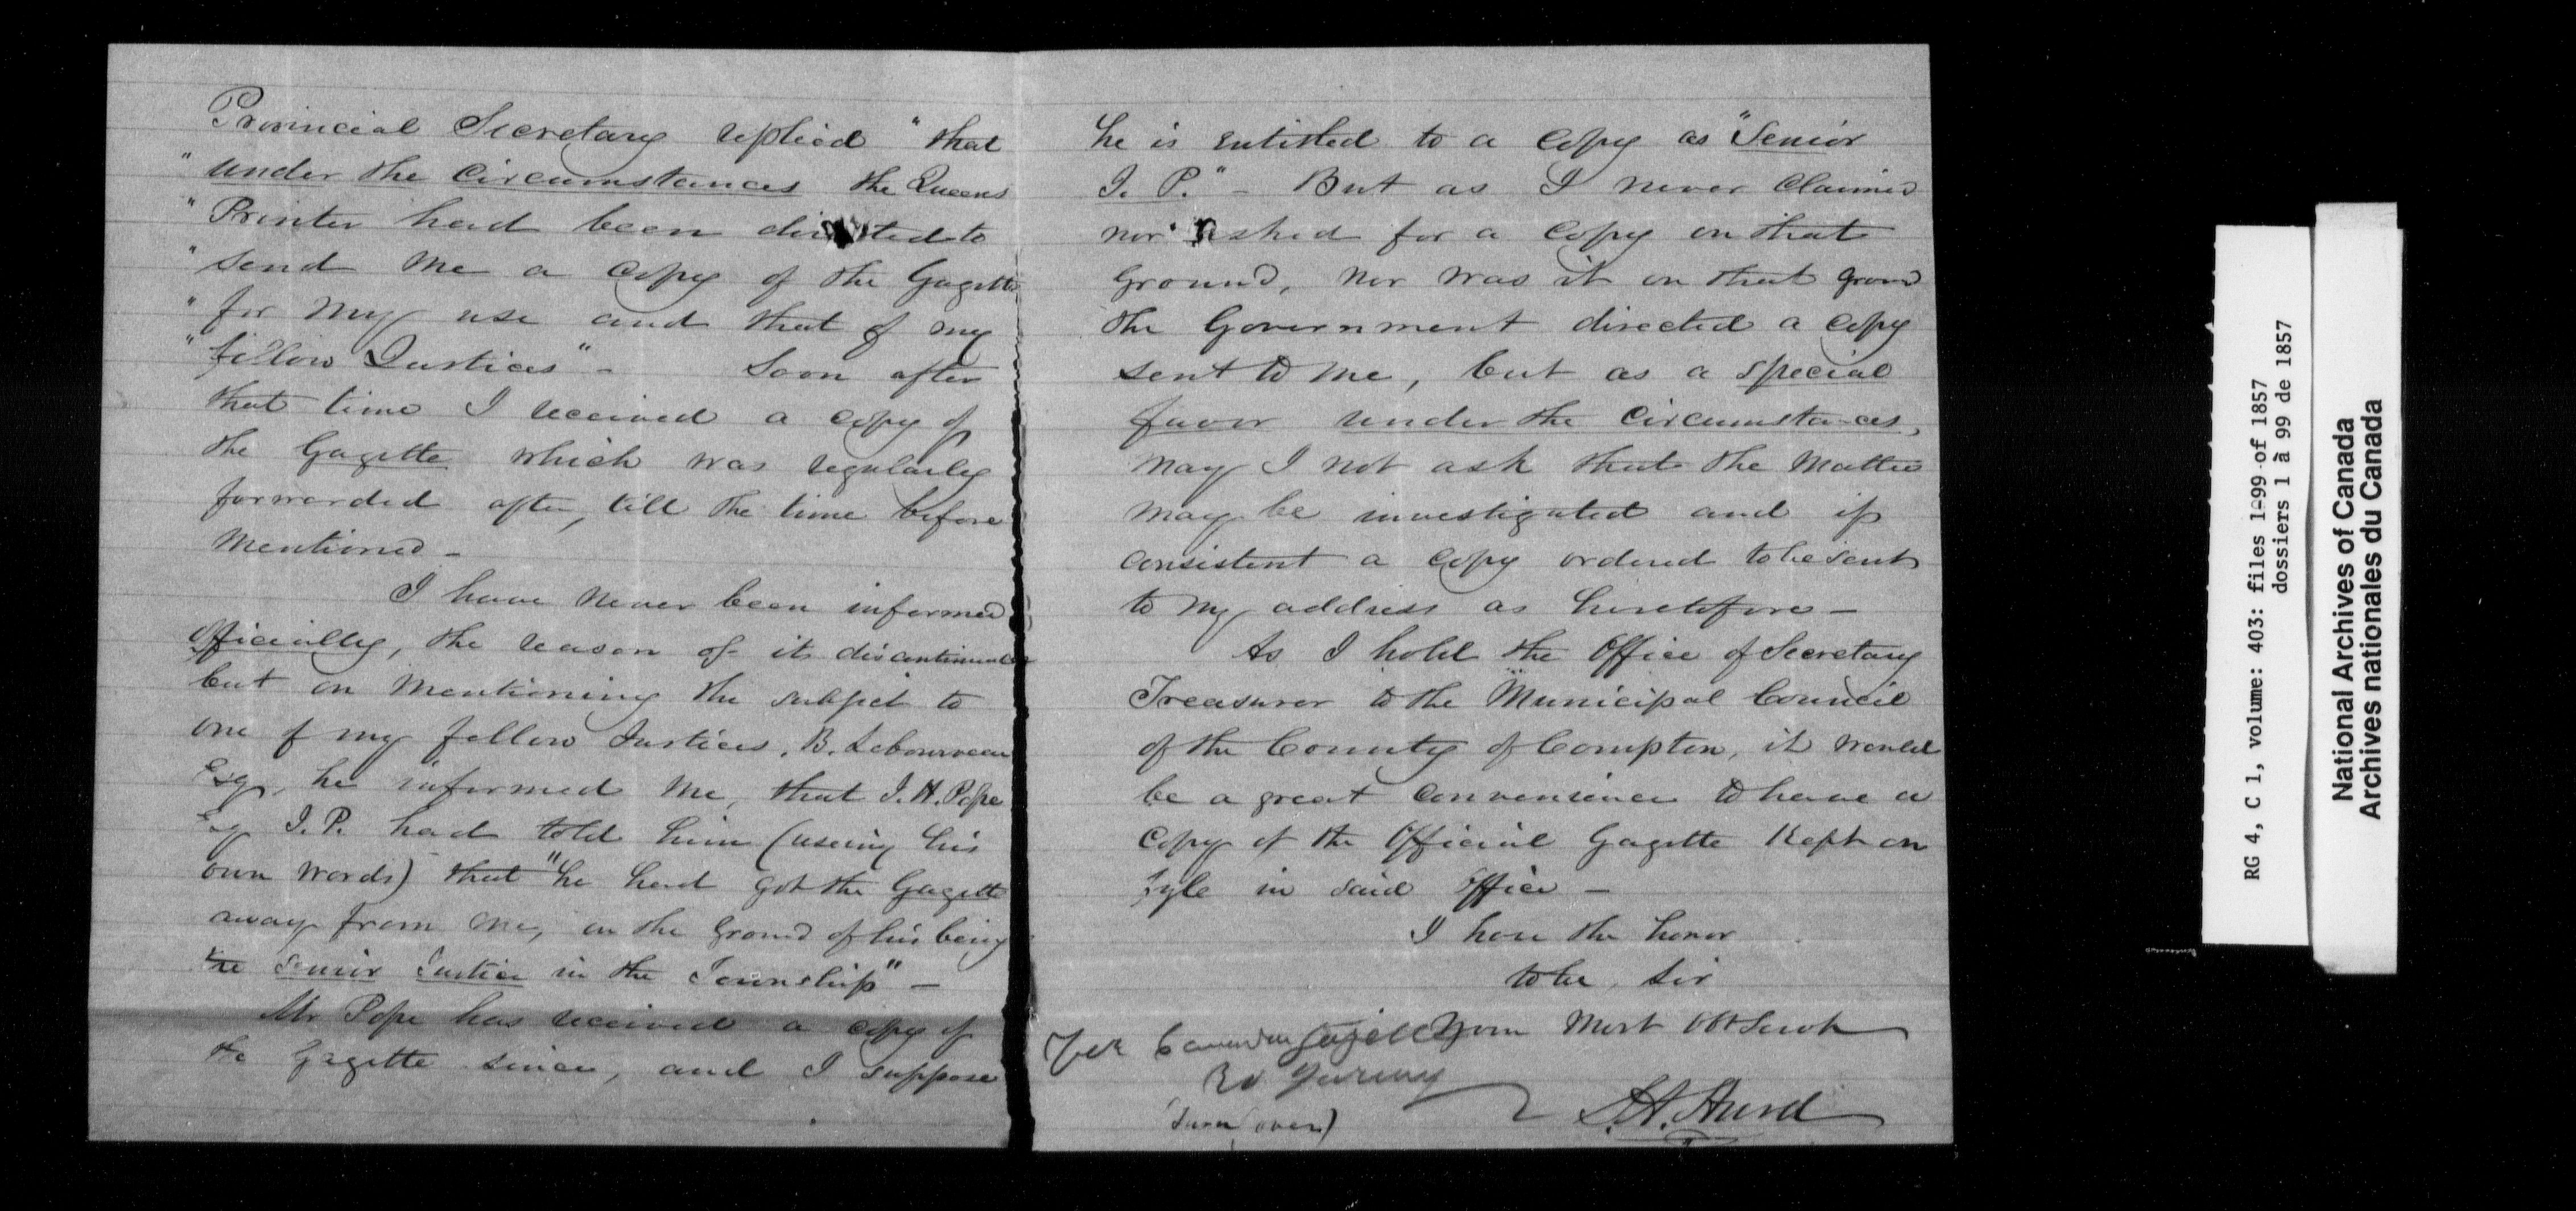 Provincial Secretary replied "that
"under the circumstances the Queens
"Printer had been directed to
"send me a copy of the Gazette
"for my use and that of my
"fellow Justices" - Soon after
that time I received a copy of
the Gazette which was regularly
forwarded after, till the time before
mentioned -
I have never been informed
officially, the reason of its discontinuance
but on mentioning the subject to
one of my fellow Justices, B. Lebourveau
Esq, he informed me, that J. H. Pope
Esq J.P. had told him (useing his
own words) that "he had got the Gazette
away from me, on the ground of his being
the Senior Justice in the Township" -
Mr Pope has received a copy of
the Gazette since, and I suppose
he is entitled to a copy as "Senior
J. P." - But as I never claimed
nor asked for a copy on that
ground, nor was it on that ground
the Government directed a copy
sent to me, but as a special
favor under the circumstances,
may I not ask that the matter
may be investigated and if
consistent a copy ordered to be sent
to my address as heretofore -
As I hold the Office of Secretary
Treasurer to the Municipal Council
of the County of Compton, it would
be a great convenience to have a
copy of the Official Gazette Kept on
fyle in said office -
I have the honor
to be, Sir
Your Most Obt Servt
Gazette
(Turn over)
RG 4, C 1, volume: 403: files 1-99 of 1857
dossiers 1 à 99 de 1857
National Archives of Canada
Archives nationales du Canada